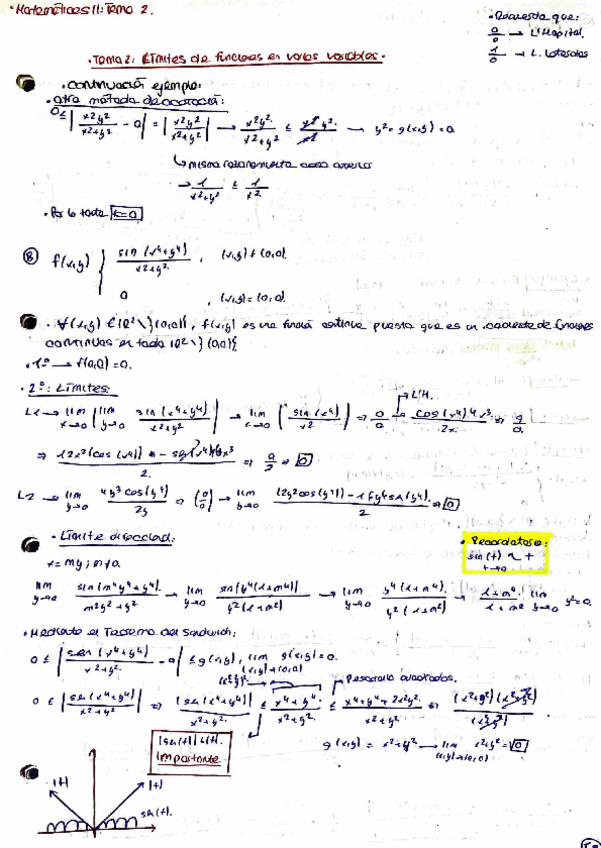 · Matemáticas II: Tema 2.
· Recuerda que:
0/0 → L'Hôpital.
1/0 → L. Laterales
· Tema 2: Límites de funciones en varias variables ·
· Continuación ejemplo:
· Otro método de acotación:
0 ≤ | x²y²/(x²+y²) - 0 | = | x²y²/(x²+y²) | → x²y²/(x²+y²) ≤ x²y²/x² → y² = g(x,y) = 0
↳ mismo razonamiento
→ 1/(x²+y²) ≤ 1/x²
· Por lo tanto L=0
⑧ f(x,y) { sin(x⁴+y⁴)/(x²+y²) , (x,y) ≠ (0,0).
0 , (x,y) = (0,0).
· ∀(x,y) ∈ ℝ² \ {(0,0)}, f(x,y) es una función continua puesto que es un cociente de funciones
continuas en todo ℝ² \ {(0,0)}
· 1º → f(0,0) = 0.
· 2º: Límites:
→ L'H.
L1 → lim x→0 | lim y→0 sin(x⁴+y⁴)/(x²+y²) | → lim x→0 | sin(x⁴)/x² | ⇒ 0/0 → cos(x⁴)4x³/2x ⇒ 0/0
⇒ 0/2 ⇒ 0
L2 → lim y→0 4y³cos(y⁴)/2y ⇒ (0/0) → lim y→0 ⇒ 0
· Límite direccional:
x = my; m≠0.
· Recordatorio:
sin(t) ~ t
t→0
lim y→0 sin(m⁴y⁴+y⁴)/(m²y²+y²) → lim y→0 sin(y⁴(1+m⁴))/(y²(1+m²)) → lim y→0 y⁴(1+m⁴)/(y²(1+m²)) → (1+m⁴)/(1+m²) lim y→0 y² = 0.
· Mediante el Teorema del Sandwich:
0 ≤ | sen(x⁴+y⁴)/(x²+y²) - 0 | ≤ g(x,y), lim (x,y)→(0,0) g(x,y) = 0.
cuadrados.
0 ≤ | sen(x⁴+y⁴)/(x²+y²) | ⇒ |sen(x⁴+y⁴)|/(x²+y²) ≤ (x⁴+y⁴)/(x²+y²) ≤ (x⁴+y⁴+2x²y²)/(x²+y²) ⇒ (x²+y²)(x²+y²)/(x²+y²)
|sen(t)| ≤ |t|.
Importante
g(x,y) = x²+y² → lim (x,y)→(0,0) x²+y² = 0
|t|
|t|
sen(t).